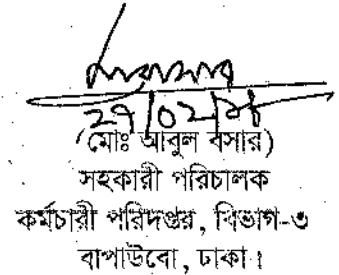 ২৭/০২/২৪
(মোঃ আবুল বসার)
সহকারী পরিচালক
কর্মচারী পরিদপ্তর, বিভাগ-৩
বাপাউবো, ঢাকা।